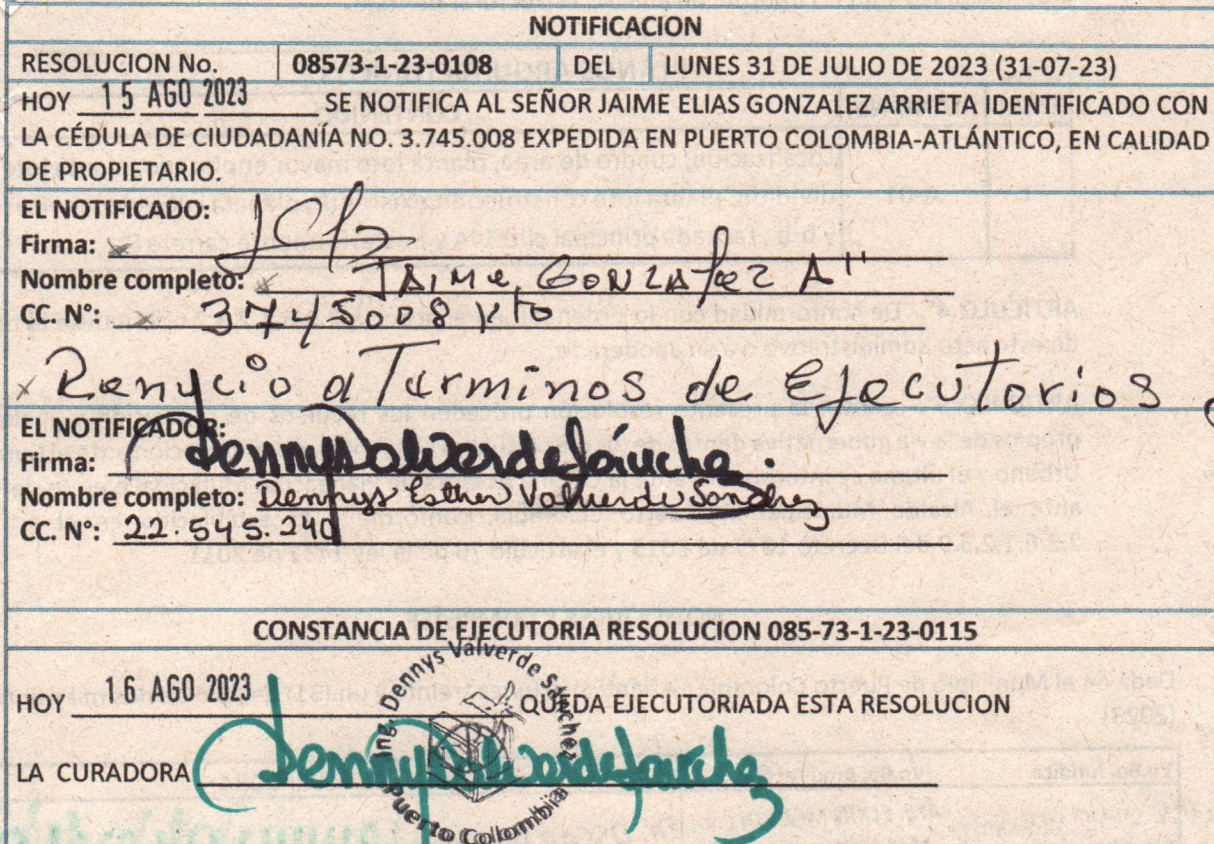 NOTIFICACION
RESOLUCION No. 08573-1-23-0108 DEL LUNES 31 DE JULIO DE 2023 (31-07-23)
HOY 15 AGO 2023 SE NOTIFICA AL SEÑOR JAIME ELIAS GONZALEZ ARRIETA IDENTIFICADO CON
LA CÉDULA DE CIUDADANÍA NO. 3.745.008 EXPEDIDA EN PUERTO COLOMBIA-ATLÁNTICO, EN CALIDAD
DE PROPIETARIO.
EL NOTIFICADO:
Firma:
Nombre completo: JAIME GONZALEZ A"
CC. N°: 3745008
Renucio a Terminos de Ejecutorios
EL NOTIFICADOR:
Firma: Dennys Valverde Sánchez.
Nombre completo: Dennys Esther Valverde Sanchez
CC. N°: 22.545.240
CONSTANCIA DE EJECUTORIA RESOLUCION 085-73-1-23-0115
HOY 16 AGO 2023 QUEDA EJECUTORIADA ESTA RESOLUCION
Ing. Dennys Valverde Sánchez
LA CURADORA Dennys Valverde Sánchez
Puerto Colombia